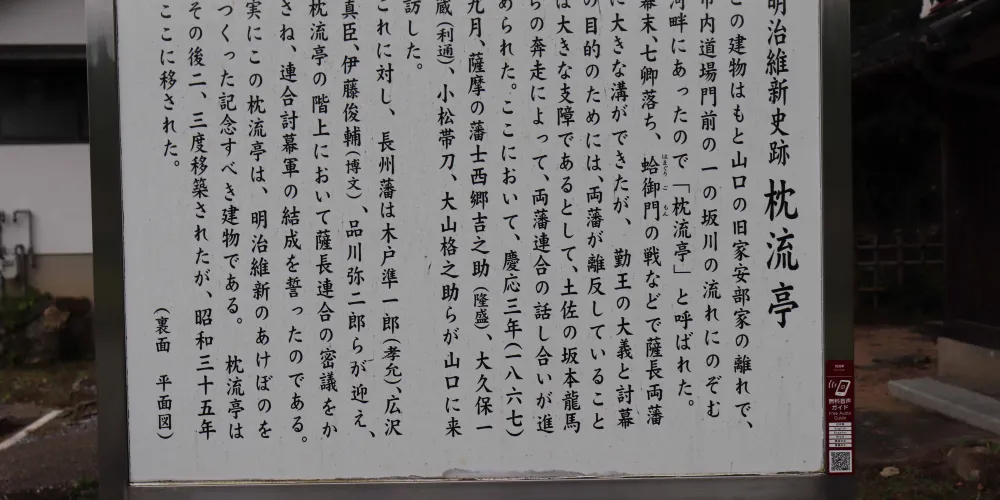 明治維新史跡 枕流亭
この建物はもと山口の旧家安部家の離れで、
市内道場門前の一の坂川の流れにのぞむ
河畔にあったので「枕流亭」と呼ばれた。
幕末、七卿落ち、蛤御門の戦などで薩長両藩
はまぐり ご もん
に大きな溝ができたが、勤王の大義と討幕
の目的のためには、両藩が離反していること
は大きな支障であるとして、土佐の坂本龍馬
らの奔走によって、両藩連合の話し合いが進
められた。ここにおいて、慶応三年(一八六七)
九月、薩摩の藩士西郷吉之助(隆盛)、大久保一
蔵(利通)、小松帯刀、大山格之助らが山口に来
訪した。
これに対し、長州藩は木戸準一郎(孝允)、広沢
真臣、伊藤俊輔(博文)、品川弥二郎らが迎え、
枕流亭の階上において薩長連合の密議をか
さね、連合討幕軍の結成を誓ったのである。
実にこの枕流亭は、明治維新のあけぼのを
つくった記念すべき建物である。 枕流亭は
その後二、三度移築されたが、昭和三十五年
ここに移された。
(裏面 平面図)
無料音声
ガイド
Free Audio
Guide